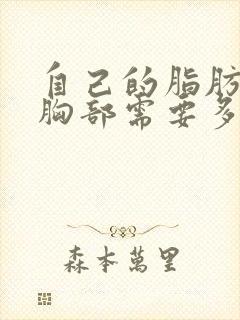 自己的脂肪
胸部需要多
森本萬里